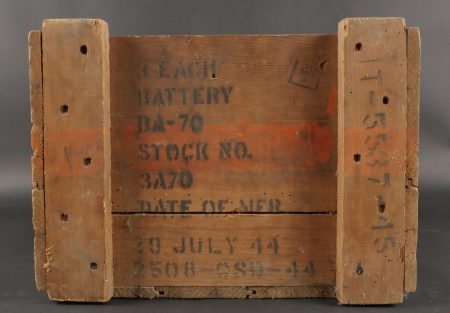 3 EACH
BATTERY
BA-70
STOCK NO.
3A70
DATE OF MFR
29 JULY 44
2508-GSD-44